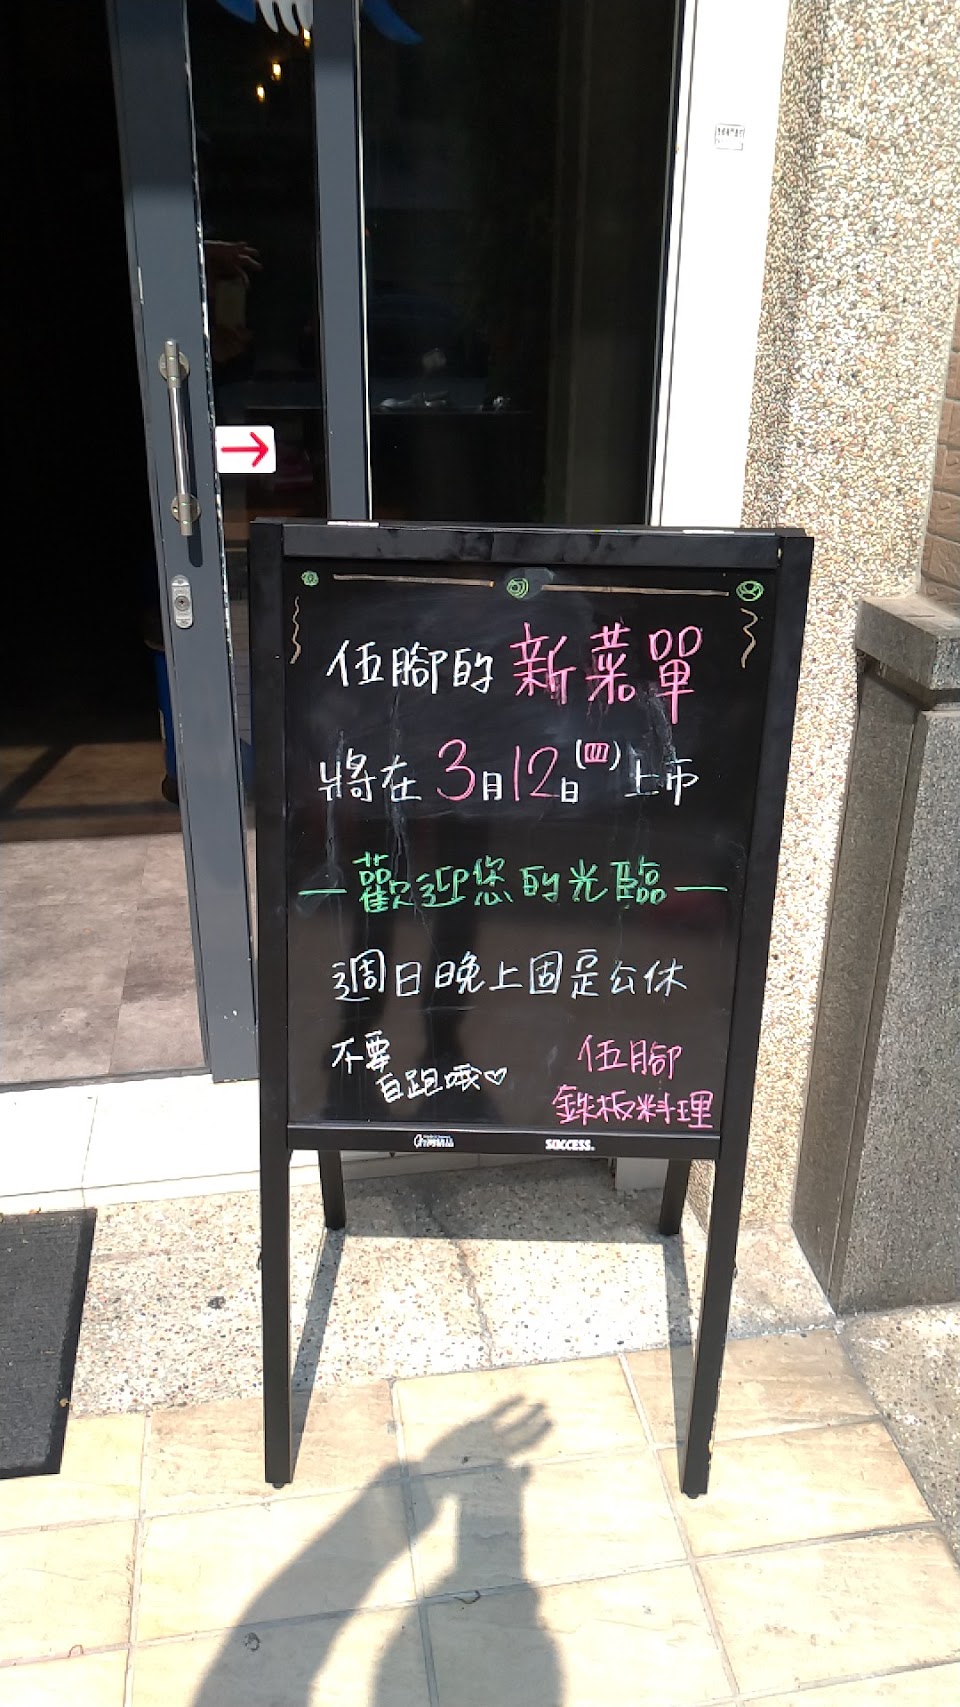 伍腳的新菜單
將在3月12日(四)上市
歡迎您的光臨
週日晚上固定公休
不要
白跑哦♡
伍腳
鉄板料理
SUCCESS